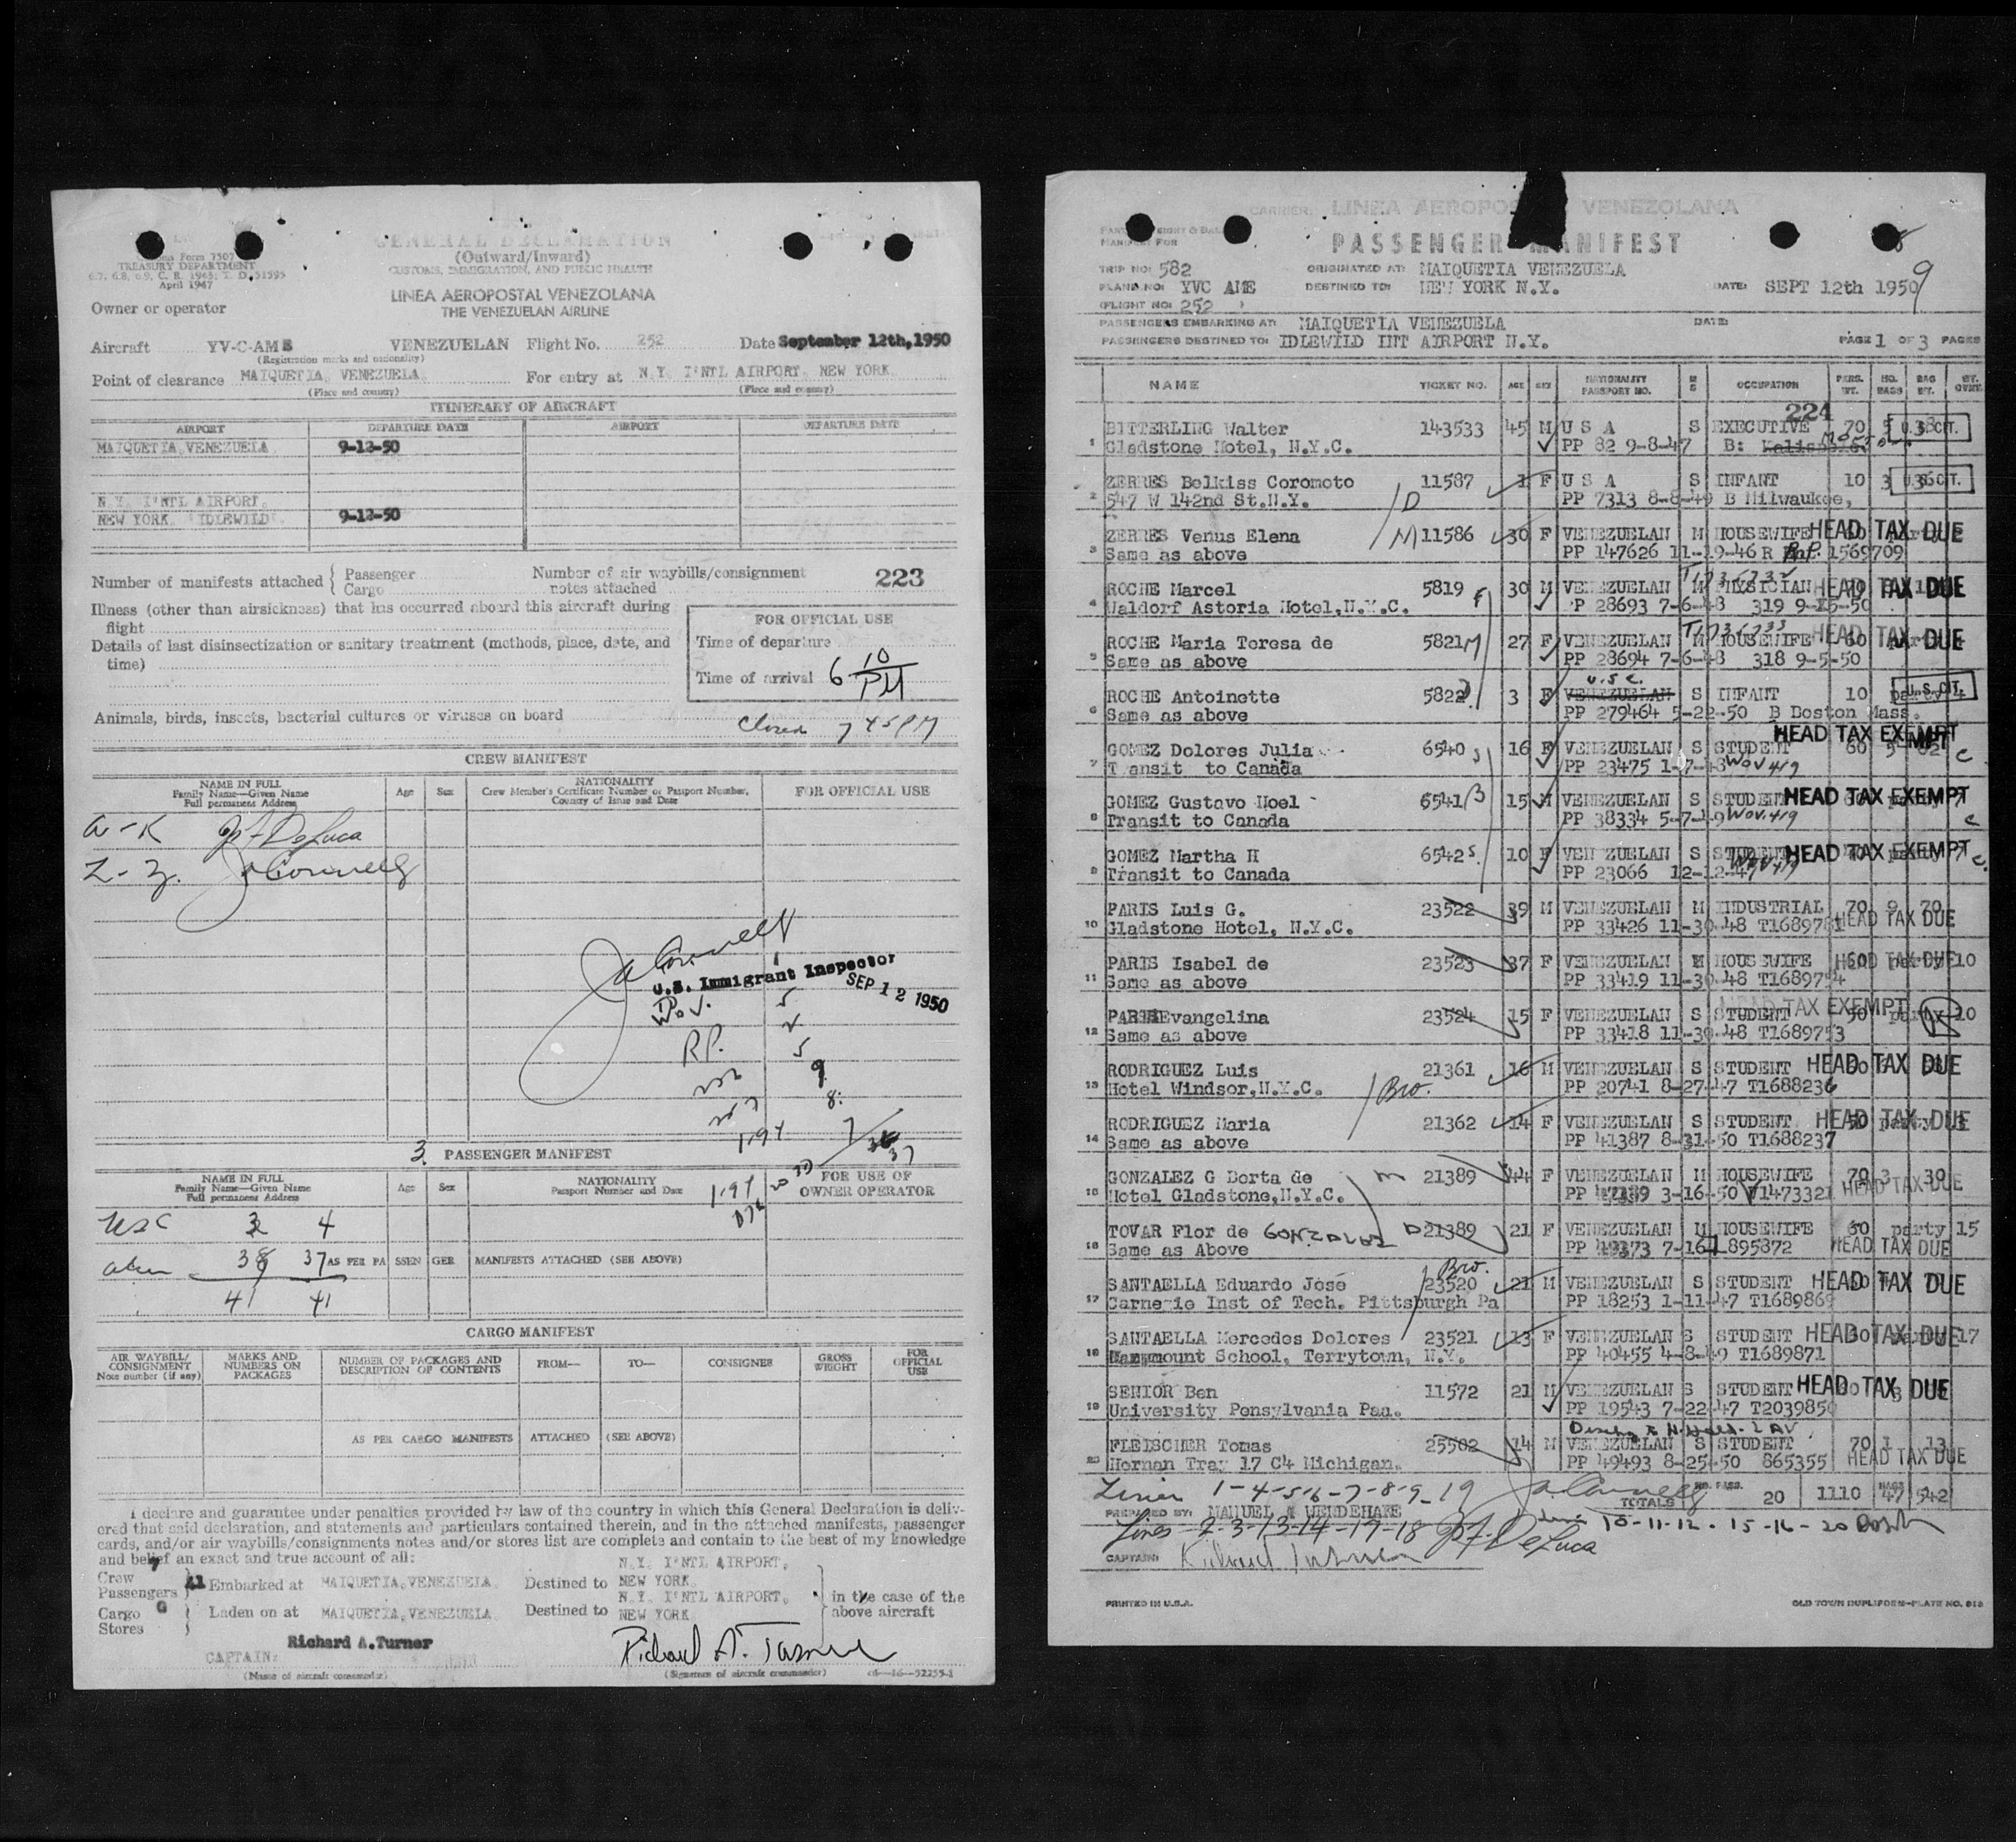 Customs Form 7507
TREASURY DEPARTMENT
6.7, 6.8, 6.9, C. R. 1943; T. D. 51595
April 1947
GENERAL DECLARATION
(Outward/Inward)
CUSTOMS, IMMIGRATION, AND PUBLIC HEALTH
LINEA AEROPOSTAL VENEZOLANA
THE VENEZUELAN AIRLINE
Owner or operator
Aircraft YV-C-AME VENEZUELAN Flight No. 252 Date September 12th, 1950
(Registration marks and nationality)
Point of clearance MAIQUETIA, VENEZUELA For entry at N.Y. I'NTL AIRPORT, NEW YORK
(Place and country) (Place and country)
ITINERARY OF AIRCRAFT
AIRPORT DEPARTURE DATE AIRPORT DEPARTURE DATE
MAIQUETIA, VENEZUELA 9-12-50
N.Y. I'NTL AIRPORT,
NEW YORK IDLEWILD 9-12-50
Number of manifests attached { Passenger Number of air waybills/consignment
Cargo notes attached
223
Illness (other than airsickness) that has occurred aboard this aircraft during
flight
Details of last disinsectization or sanitary treatment (methods, place, date, and
time)
FOR OFFICIAL USE
Time of departure
Time of arrival 6 10 PM
Animals, birds, insects, bacterial cultures or viruses on board
Closed 7 45 PM
CREW MANIFEST
NAME IN FULL
Family Name—Given Name
Full permanent Address
Age Sex
NATIONALITY
Crew Member's Certificate Number or Passport Number,
Country of Issue and Date
FOR OFFICIAL USE
A-K J F DeLuca
L-Z. Ja Connelly
Ja Connelly
U.S. Immigrant Inspector
SEP 12 1950
W.V. 5
R.P. 5
9
8
1-94 7
37
3 PASSENGER MANIFEST
NAME IN FULL
Family Name—Given Name
Full permanent Address
Age Sex
NATIONALITY
Passport Number and Date
FOR USE OF
OWNER OPERATOR
USC 3 4
alien 38 37 AS PER PASSENGER MANIFESTS ATTACHED (SEE ABOVE)
41 41
CARGO MANIFEST
AIR WAYBILL/
CONSIGNMENT
Note number (if any)
MARKS AND
NUMBERS ON
PACKAGES
NUMBER OF PACKAGES AND
DESCRIPTION OF CONTENTS
FROM— TO— CONSIGNEE
GROSS
WEIGHT
FOR
OFFICIAL
USE
AS PER CARGO MANIFESTS ATTACHED (SEE ABOVE)
I declare and guarantee under penalties provided by law of the country in which this General Declaration is deliv-
ered that said declaration, and statements and particulars contained therein, and in the attached manifests, passenger
cards, and/or air waybills/consignments notes and/or stores list are complete and contain to the best of my knowledge
and belief an exact and true account of all:
Crew 7
Passengers 41 Embarked at MAIQUETIA, VENEZUELA Destined to N.Y. I'NTL AIRPORT, NEW YORK in the case of the
Cargo Laden on at MAIQUETIA, VENEZUELA Destined to N.Y. I'NTL AIRPORT, NEW YORK above aircraft
Stores
Richard A. Turner
CAPTAIN:
Richard A. Turner
(Name of aircraft commander) (Signature of aircraft commander) c6—16—52255-1
CARRIER: LINEA AEROPOSTAL VENEZOLANA
MANIFEST FOR
PASSENGER MANIFEST
TRIP NO: 582 ORIGINATED AT: MAIQUETIA VENEZUELA
PLANE NO: YVC AME DESTINED TO: NEW YORK N.Y. DATE: SEPT 12th 1950
(FLIGHT NO: 252 )
PASSENGERS EMBARKING AT: MAIQUETIA VENEZUELA DATE:
PASSENGERS DESTINED TO: IDLEWILD INT AIRPORT N.Y. PAGE 1 OF 3 PAGES
NAME TICKET NO. AGE SEX NATIONALITY PASSPORT NO. M S OCCUPATION PERS. WT. NO. BAGS BAG WT.
224
1 BITTERLING Walter 143533 45 M U S A S EXECUTIVE 70 5 U.S. CIT.
Gladstone Hotel, N.Y.C. PP 82 9-8-47 B:
2 ZERRES Belkiss Coromoto 11587 1 F U S A S INFANT 10 3 U.S. CIT.
547 W 142nd St.N.Y. D PP 7313 8-8-49 B Milwaukee,
3 ZERRES Venus Elena M 11586 30 F VENEZUELAN M HOUSEWIFE HEAD TAX DUE
Same as above PP 147626 11-19-46 R 1569709
4 ROCHE Marcel 5819 F 30 M VENEZUELAN M PHYSICIAN HEAD TAX DUE
Waldorf Astoria Hotel,N.Y.C. PP 28693 7-6-48 319 9-15-50
5 ROCHE Maria Teresa de 5821 M 27 F VENEZUELAN M HOUSEWIFE 60 HEAD TAX DUE
Same as above PP 28694 7-6-48 318 9-5-50
6 ROCHE Antoinette 5822 3 F U.S.C. VENEZUELAN S INFANT 10 U.S. CIT.
Same as above PP 279464 5-22-50 B Boston Mass.
7 GOMEZ Dolores Julia 6540 S 16 F VENEZUELAN S STUDENT 60 5 62 HEAD TAX EXEMPT
Transit to Canada PP 23475 1-7-48 WOV 419 C
8 GOMEZ Gustavo Noel 6541 B 15 M VENEZUELAN S STUDENT HEAD TAX EXEMPT
Transit to Canada PP 38334 5-7-49 WOV.419 C
9 GOMEZ Martha H 6542 S. 10 F VENEZUELAN S STUDENT HEAD TAX EXEMPT
Transit to Canada PP 23066 12-12-47 C.
10 PARIS Luis G. 23522 39 M VENEZUELAN M INDUSTRIAL 70 9 70
Gladstone Hotel, N.Y.C. PP 33426 11-30-48 HEAD TAX DUE
11 PARIS Isabel de 23523 37 F VENEZUELAN M HOUSEWIFE 60 party 10 HEAD TAX DUE
Same as above PP 33419 11-30-48 T1689754
12 PARIS Evangelina 23524 15 F VENEZUELAN S STUDENT 50 party 10 HEAD TAX EXEMPT
Same as above PP 33418 11-30-48 T1689753
13 RODRIGUEZ Luis 21361 16 M VENEZUELAN S STUDENT HEAD TAX DUE
Hotel Windsor,N.Y.C. Bro. PP 20741 8-27-47 T1688236
14 RODRIGUEZ Maria 21362 14 F VENEZUELAN S STUDENT HEAD TAX DUE
Same as above PP 41387 8-31-50 T1688237
15 GONZALEZ G Berta de M 21389 44 F VENEZUELAN M HOUSEWIFE 70 3 30
Hotel Gladstone,N.Y.C. 3-16-50 HEAD TAX DUE
16 TOVAR Flor de GONZALEZ D 21389 21 F VENEZUELAN M HOUSEWIFE 60 party 15
Same as Above 895872 HEAD TAX DUE
17 SANTAELLA Eduardo José Bro. 23520 21 M VENEZUELAN S STUDENT HEAD TAX DUE
Carnegie Inst of Tech. Pittsburgh Pa PP 18253 1-11-47 T1689869
18 SANTAELLA Mercedes Dolores 23521 13 F VENEZUELAN S STUDENT HEAD TAX DUE 17
Marymount School, Terrytown, N.Y. PP 40455 4-8-49 T1689871
19 SENIOR Ben 11572 21 M VENEZUELAN S STUDENT HEAD TAX DUE
University Pensylvania Paa. PP 19543 7-22-47 T2039850
20 FLEISCHER Tomas 25502 14 M VENEZUELAN S STUDENT 70 1 13
Hernan Tray 17 C4 Michigan. PP 49493 8-25-50 865355 HEAD TAX DUE
Lines 1-4-5-6-7-8-9-19 Ja Connelly
TOTALS NO. PASS. 20 1110 BAGS 47 542
PREPARED BY: MANUEL A WENDEHAKE
Lines 2-3-13-14-17-18 J F. DeLuca
Lines 10-11-12-15-16-20
CAPTAIN: Richard Turner
PRINTED IN U.S.A. OLD TOWN DUPLIFORM—PLATE NO. 818